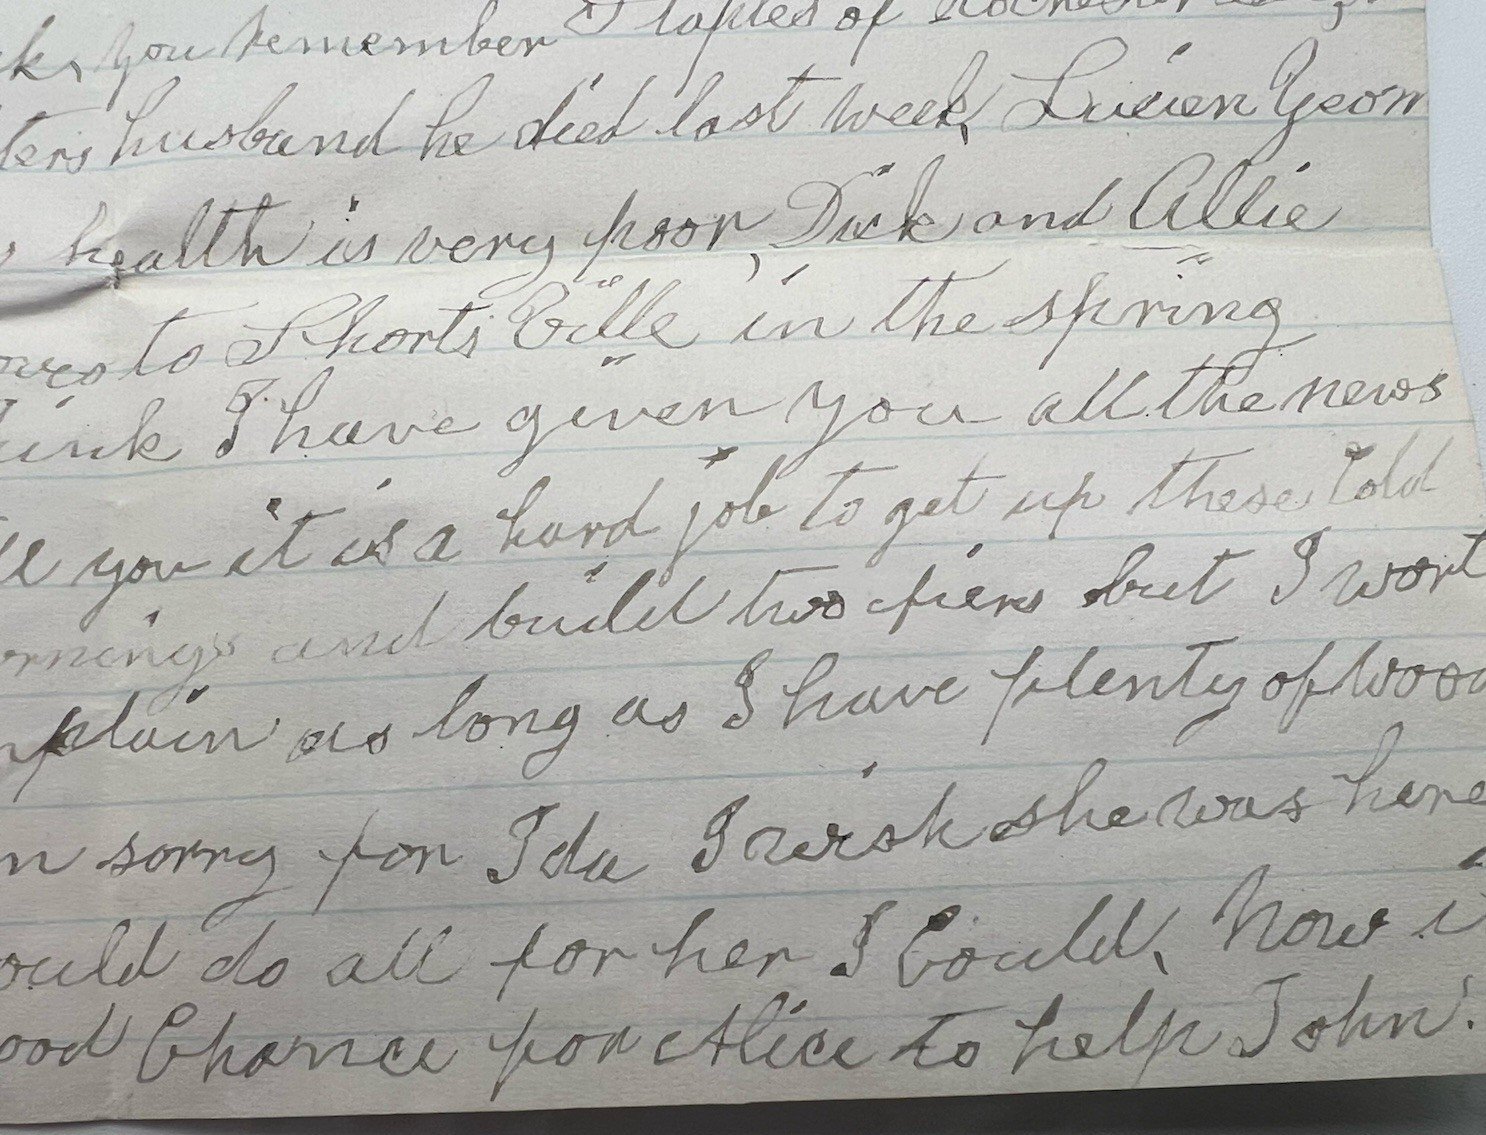 you remember Staples of
husband he died last week, Lucien Yeom
health is very poor, Dick and Allie
to Shorts Ville in the spring
I have given you all the news
you it is a hard job to get up these Cold
ornings and build two fiers but I wont
plain as long as I have plenty of wood
sorry for Ida I wish she was here
ould do all for her I Could, Now i
ood Chance for Alice to help John.